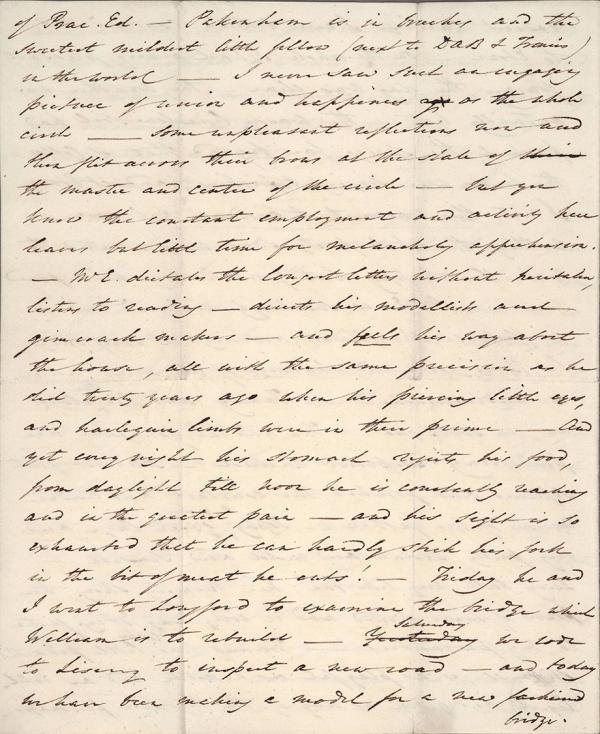 of Prac. Ed. — Pakenham is in breeches and the
sweetest mildest little fellow (next to DAB & Francis)
in the world — I never saw such an engaging
picture of union and happiness as the whole
circle — some unpleasant reflections now and
then flit across their brows at the state of their
the master and center of the circle — but you
know the constant employment and activity here
leaves but little time for melancholy apprehension.
— Mr E. dictates the longest letters without hesitation,
listens to reading — directs his modellists and
gimcrack makers — and feels his way about
the house, all with the same precision as he
did twenty years ago when his piercing little eyes,
and harlequin limbs were in their prime — And
yet every night his stomach rejects his food,
from daylight till noon he is constantly reaching
and in the greatest pain — and his sight is so
exhausted that he can hardly stick his fork
in the bit of meat he eats. — Friday he and
I went to Longford to examine the bridge which
William is to rebuild — Yesterday Saturday we rode
to Lissey to inspect a new road — and today
we have been making a model for a new fashioned
bridge.